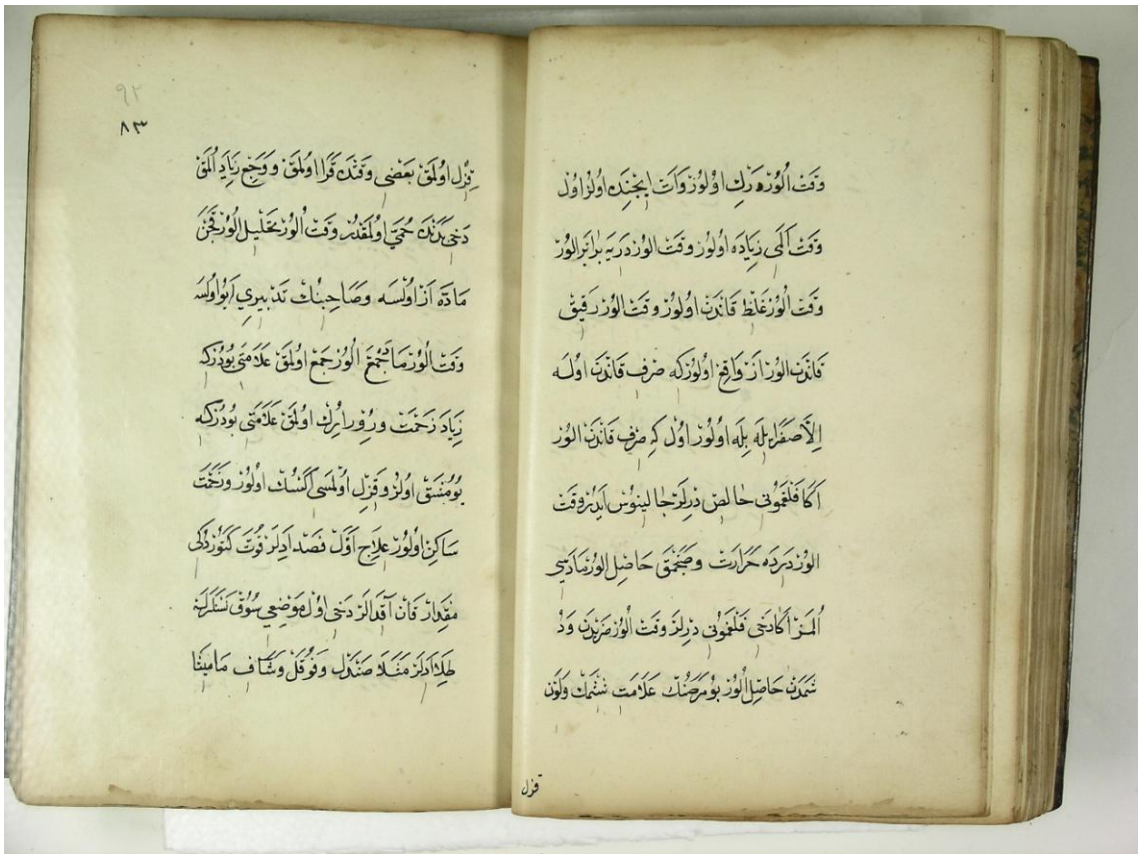 وقت الور درك اولور وات ايچنده اولور اول
وقت المى زياده اولور وقت الور دريه برابر الور
وقت الور غلظ قاندن اولور وقت الور رقيق
قاندن الور از واقع اولور كه صرف قاندن اوله
الا صفرا ايله بله اولور اول كه صرف قاندن الور
اكا فلغمونى خالص درلر جالينوس ايدر وقت
الور دمرده حرارت وضخمق حاصل الور مادسى
المز اكا دخى فلغمونى درلر وقت الور ضربدن ود
شمدن حاصل الور بو مرضنك علامت ششمك ولون
قزل
٩٢
٨٣
قزل اولمق بعضى وقتده قرا اولمق ووجع زياد المق
دخى بدنده حمى اولمقدر وقت الور تحليل الور قچن
ماده از اولسه وصاحبنك تدبيرى ايو اولسه
وقت الور ما تجمع الور جمع اولمق علامتى بودركه
زياد زحمت وزورارك اولمق علامتى بودركه
يومشق اولر وقزل اولمسى اكسك اولور وزحمت
ساكن اولور علاج اول فصد ادلر قوت كتوردكى
مقدار قان آقدالر دخى اول موضعى سوق نسنلرله
طلا ادلر مثلا صندل وفوفل وشاف ماميثا